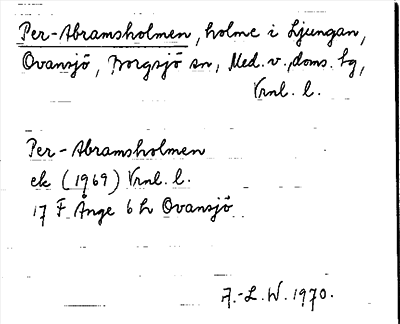 Per-Abramsholmen, holme i Ljungan,
Ovansjö, Borgsjö sn, Med. v., doms. hg,
Vrnl. l.
Per-Abramsholmen
ek (1969) Vrnl. l.
17 F Ånge 6 h Ovansjö
A.-L. W. 1970.